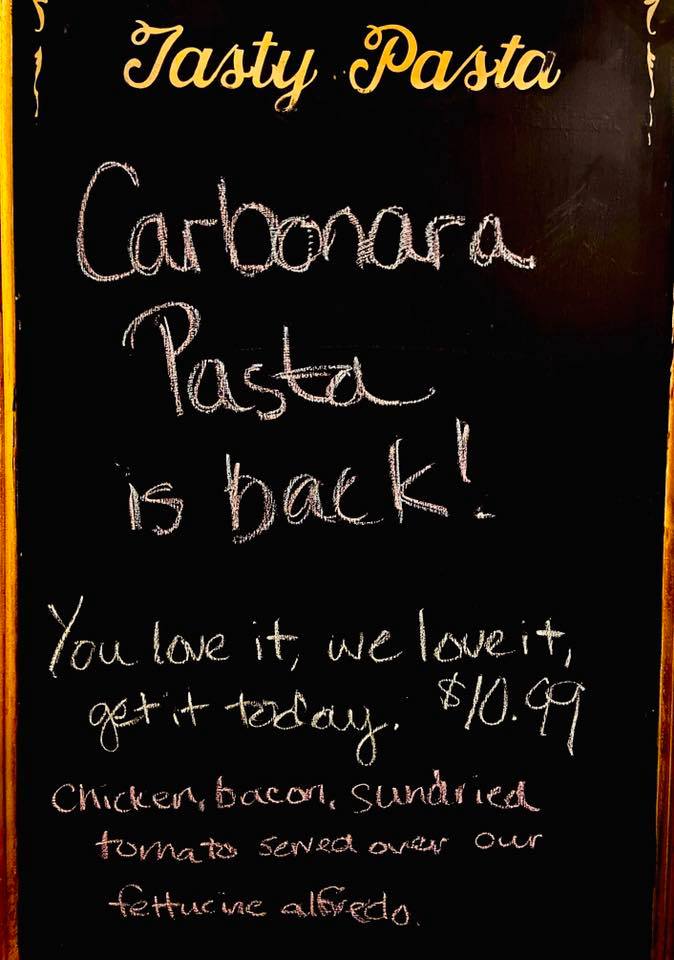 Tasty Pasta
Carbonara
Pasta
is back!
You love it, we love it,
get it today. $10.99
Chicken, bacon, sundried
tomato served over our
fettucine alfredo.